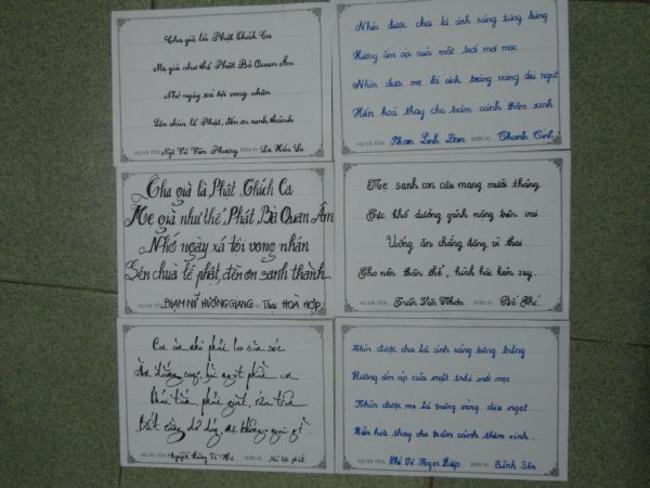 Cha già là Phật Thích Ca
Mẹ già như thể Phật Bà Quan Âm
Nhớ ngày xá tội vong nhân
Lên chùa lễ Phật, đền ơn sanh thành
HỌ VÀ TÊN: Ngô Vũ Văn Phượng ĐƠN VỊ:
Nhìn được cha là ánh sáng tưng bừng
Hướng ấm áp của mặt trời mới mọc
Nhìn được mẹ là ánh trăng vàng dịu ngọt
Hiền hoà thay cho trăm cảnh thêm xinh
HỌ VÀ TÊN: Phan Linh Đan ĐƠN VỊ:
Cha già là Phật Thích Ca
Mẹ già như thể Phật Bà Quan Âm
Nhớ ngày xá tội vong nhân
Lên chùa lễ phật, đền ơn sanh thành
PHẠM NỮ HƯƠNG GIANG HOÀ HỢP
Mẹ sanh con cưu mang mười tháng
Cực khổ dường gánh nặng trên vai
Uống ăn chẳng đặng vì thai
Cho nên thân thể, hình hài kém suy.
HỌ VÀ TÊN: Trần Văn Nhơn ĐƠN VỊ:
Con ăn phải lo săn sóc
Ăn đắng cay, bùi ngọt phần con
Phải tắm, phải giặt, rửa trôn
Biết rằng dơ dáy, mẹ không ngại gì.
HỌ VÀ TÊN: Nguyễn ĐƠN VỊ:
Nhìn được cha là ánh sáng tưng bừng
Hướng ấm áp của mặt trời mới mọc
Nhìn được mẹ là trăng vàng dịu ngọt
Hiền hoà thay cho trăm cảnh thêm xinh.
HỌ VÀ TÊN: Ngọc Diệp ĐƠN VỊ: Bình Sơn